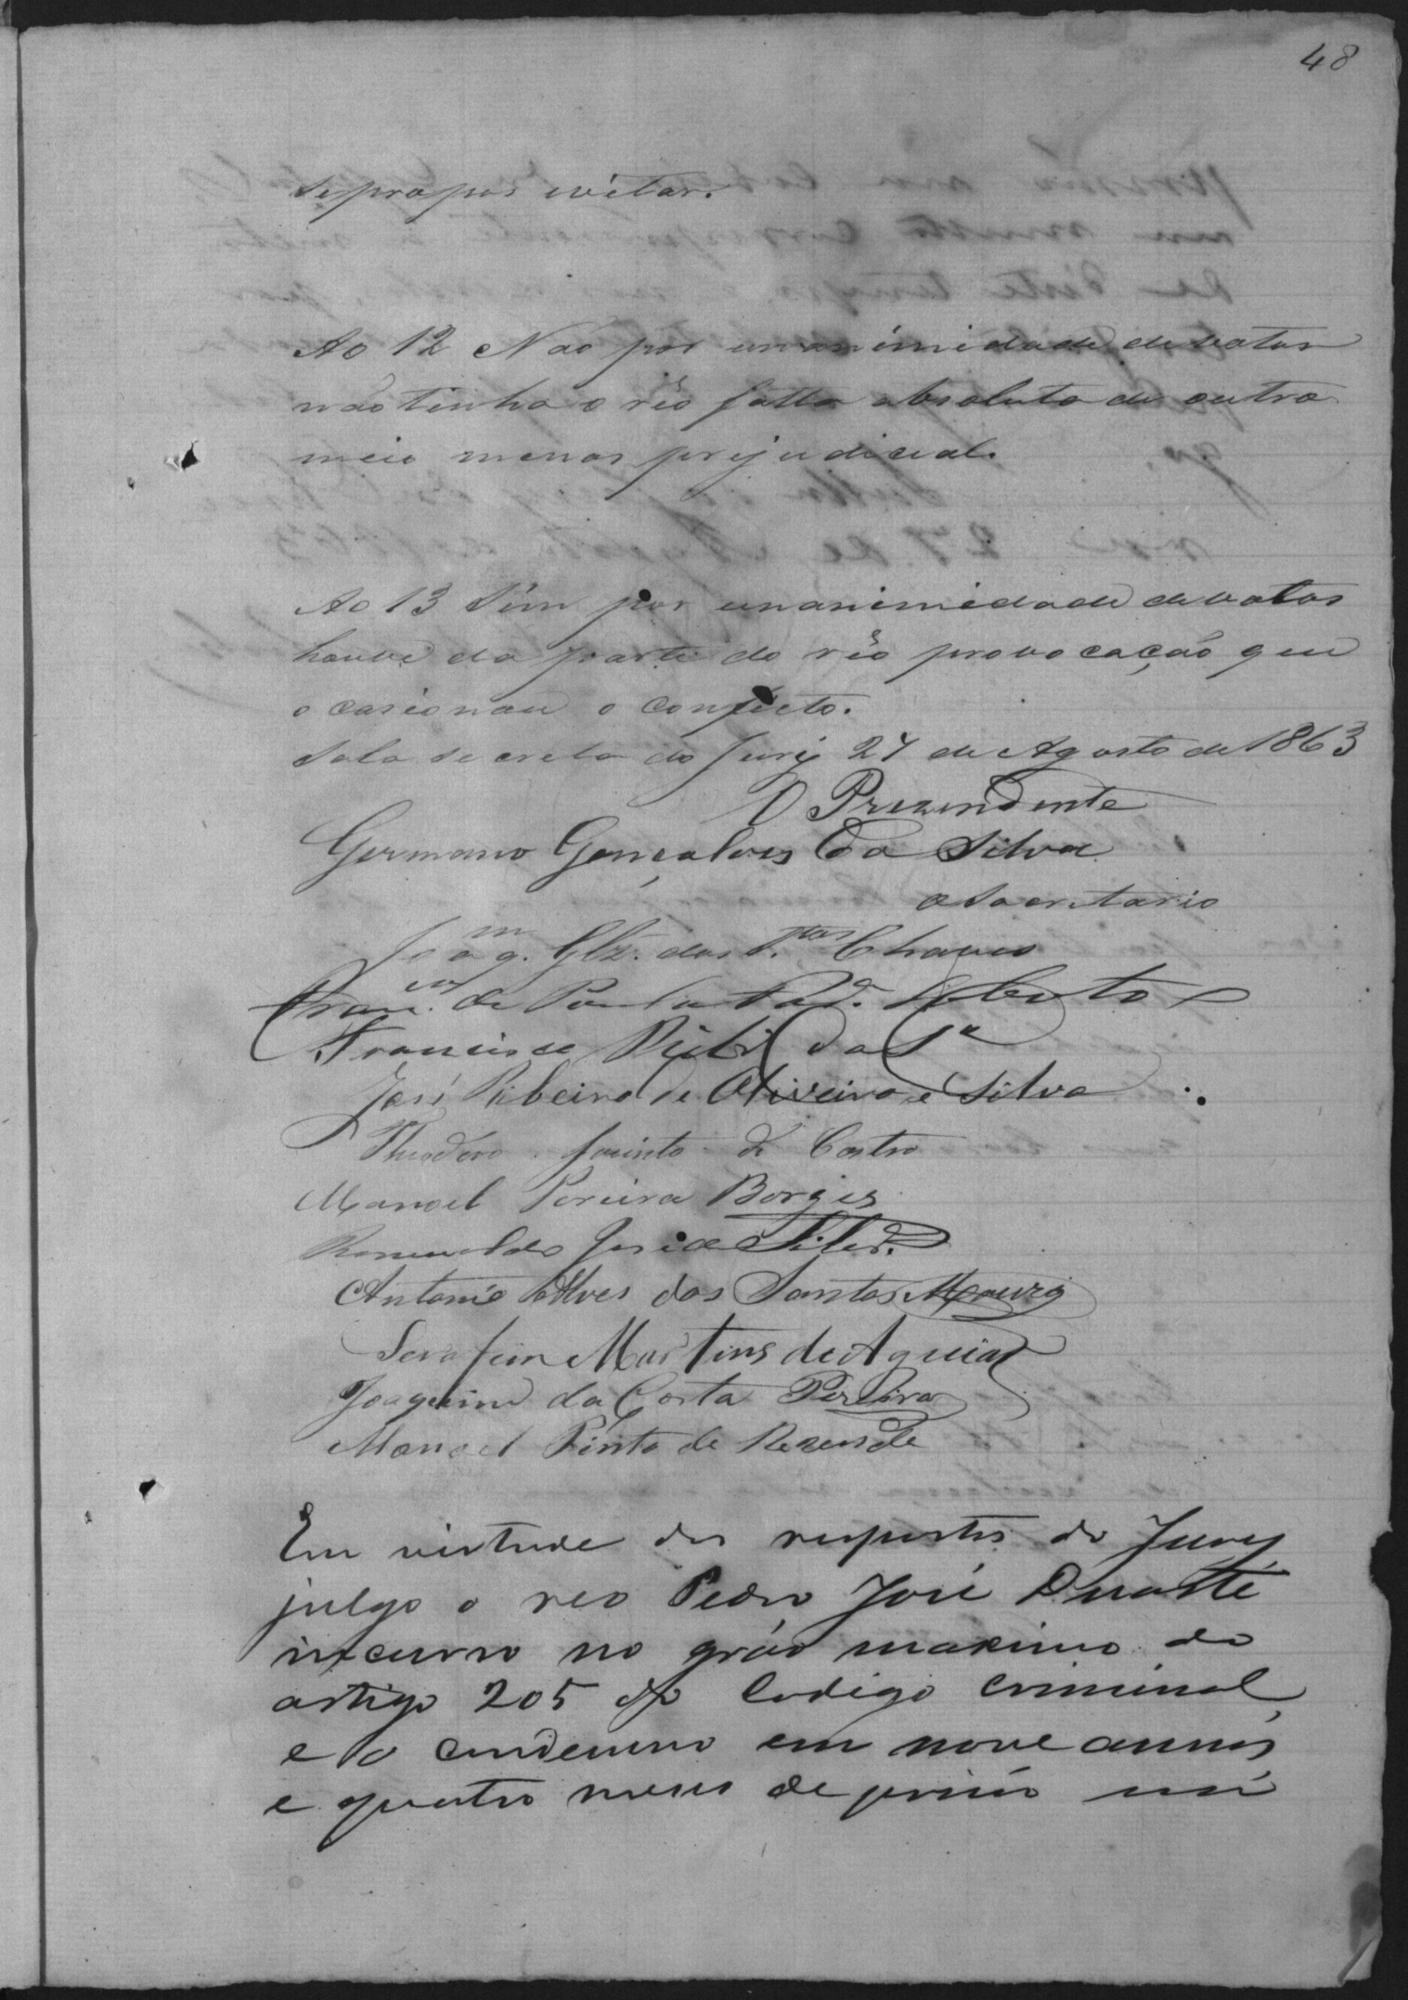 48
se propos evitar.
Ao 12 Não por unanimidade de votos
não tinha o réo falta absoluta de outro
meio menos prejudicial.
Ao 13 Sim por unanimidade de votos
houve da parte do réo provocação que
ocasionou o conflicto.
Sala secreta do Jury 27 de Agosto de 1863
O Prezendente
Germano Gonçalves da Silva
o Secretario
Joaqm. Glz. dos Chaves
Francco. de Paula
Francisco da Sa
José Ribeiro de Oliveira e Silva
Theodoro Jacinto de Castro
Manoel Pereira Borges
Romualdo José
Antonio Alves dos Santos Moura
Serafim Martins de Aguiar
Joaquim da Costa Pereira
Manoel Pinto de Rezende
Em virtude das respostas do Jury
julgo o reo Pedro José Duarte
incurso no gráo maximo do
artigo 205 do Codigo Criminal,
e o condemno em nove annos
e quatro meses de prisão